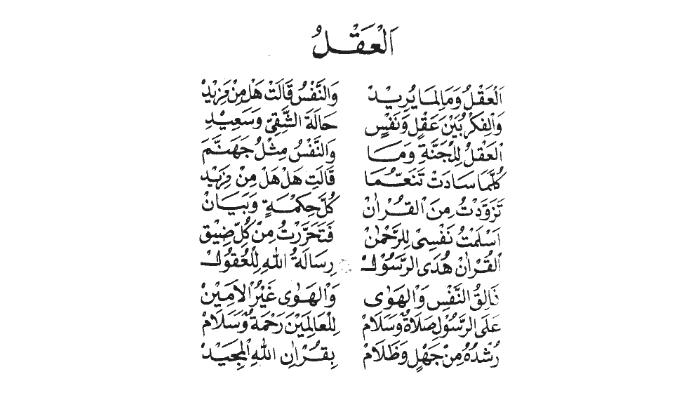 اَلْعَقْلُ
اَلعَقْلُ وَمَا لِمَا يُرِيْدْ وَالنَّفْسُ قَالَتْ هَلْ مِنْ مَزِيْدْ
وَالفِكْرُ بَيْنَ عَقْلٍ وَنَفْسٍ حَالَةَ الشَّقِيِّ وَسَعِيْدِ
اَلعَقْلُ لِلْجَنَّةِ وَمَا وَالنَّفْسُ مِثْلُ جَهَنَّمَ
كُلَّمَا سَادَتْ تَنَعُّمَا قَالَتِ هَلْ هَلْ مِنْ مَزِيْدْ
تَزَوَّدْتُ مِنَ القُرْاٰنْ كُلَّ حِكْمَةٍ وَبَيَانْ
اَسْلَمْتُ نَفْسِىْ لِلرَّحْمٰنْ فَتَحَرَّرْتُ مِنْ كُلِّ ضِيْقْ
اَلْقُرْاٰنْ هُدَى الرَّسُوْلْ رِسَالَةُ اللهِ لِلْعُقُوْلْ
النَّفْسِ وَالْهَوٰى وَالْهَوٰى غَيْرُ الْاَمِيْنْ
عَلَى الرَّسُوْلِ صَلَاةٌ وَسَلَامْ لِلْعَالَمِيْنَ رَحْمَةٌ وَسَلَامْ
رُشْدُهُ مِنْ جَهْلٍ وَظَلَامْ بِقُرْاٰنِ اللهِ الْمَجِيْدْ